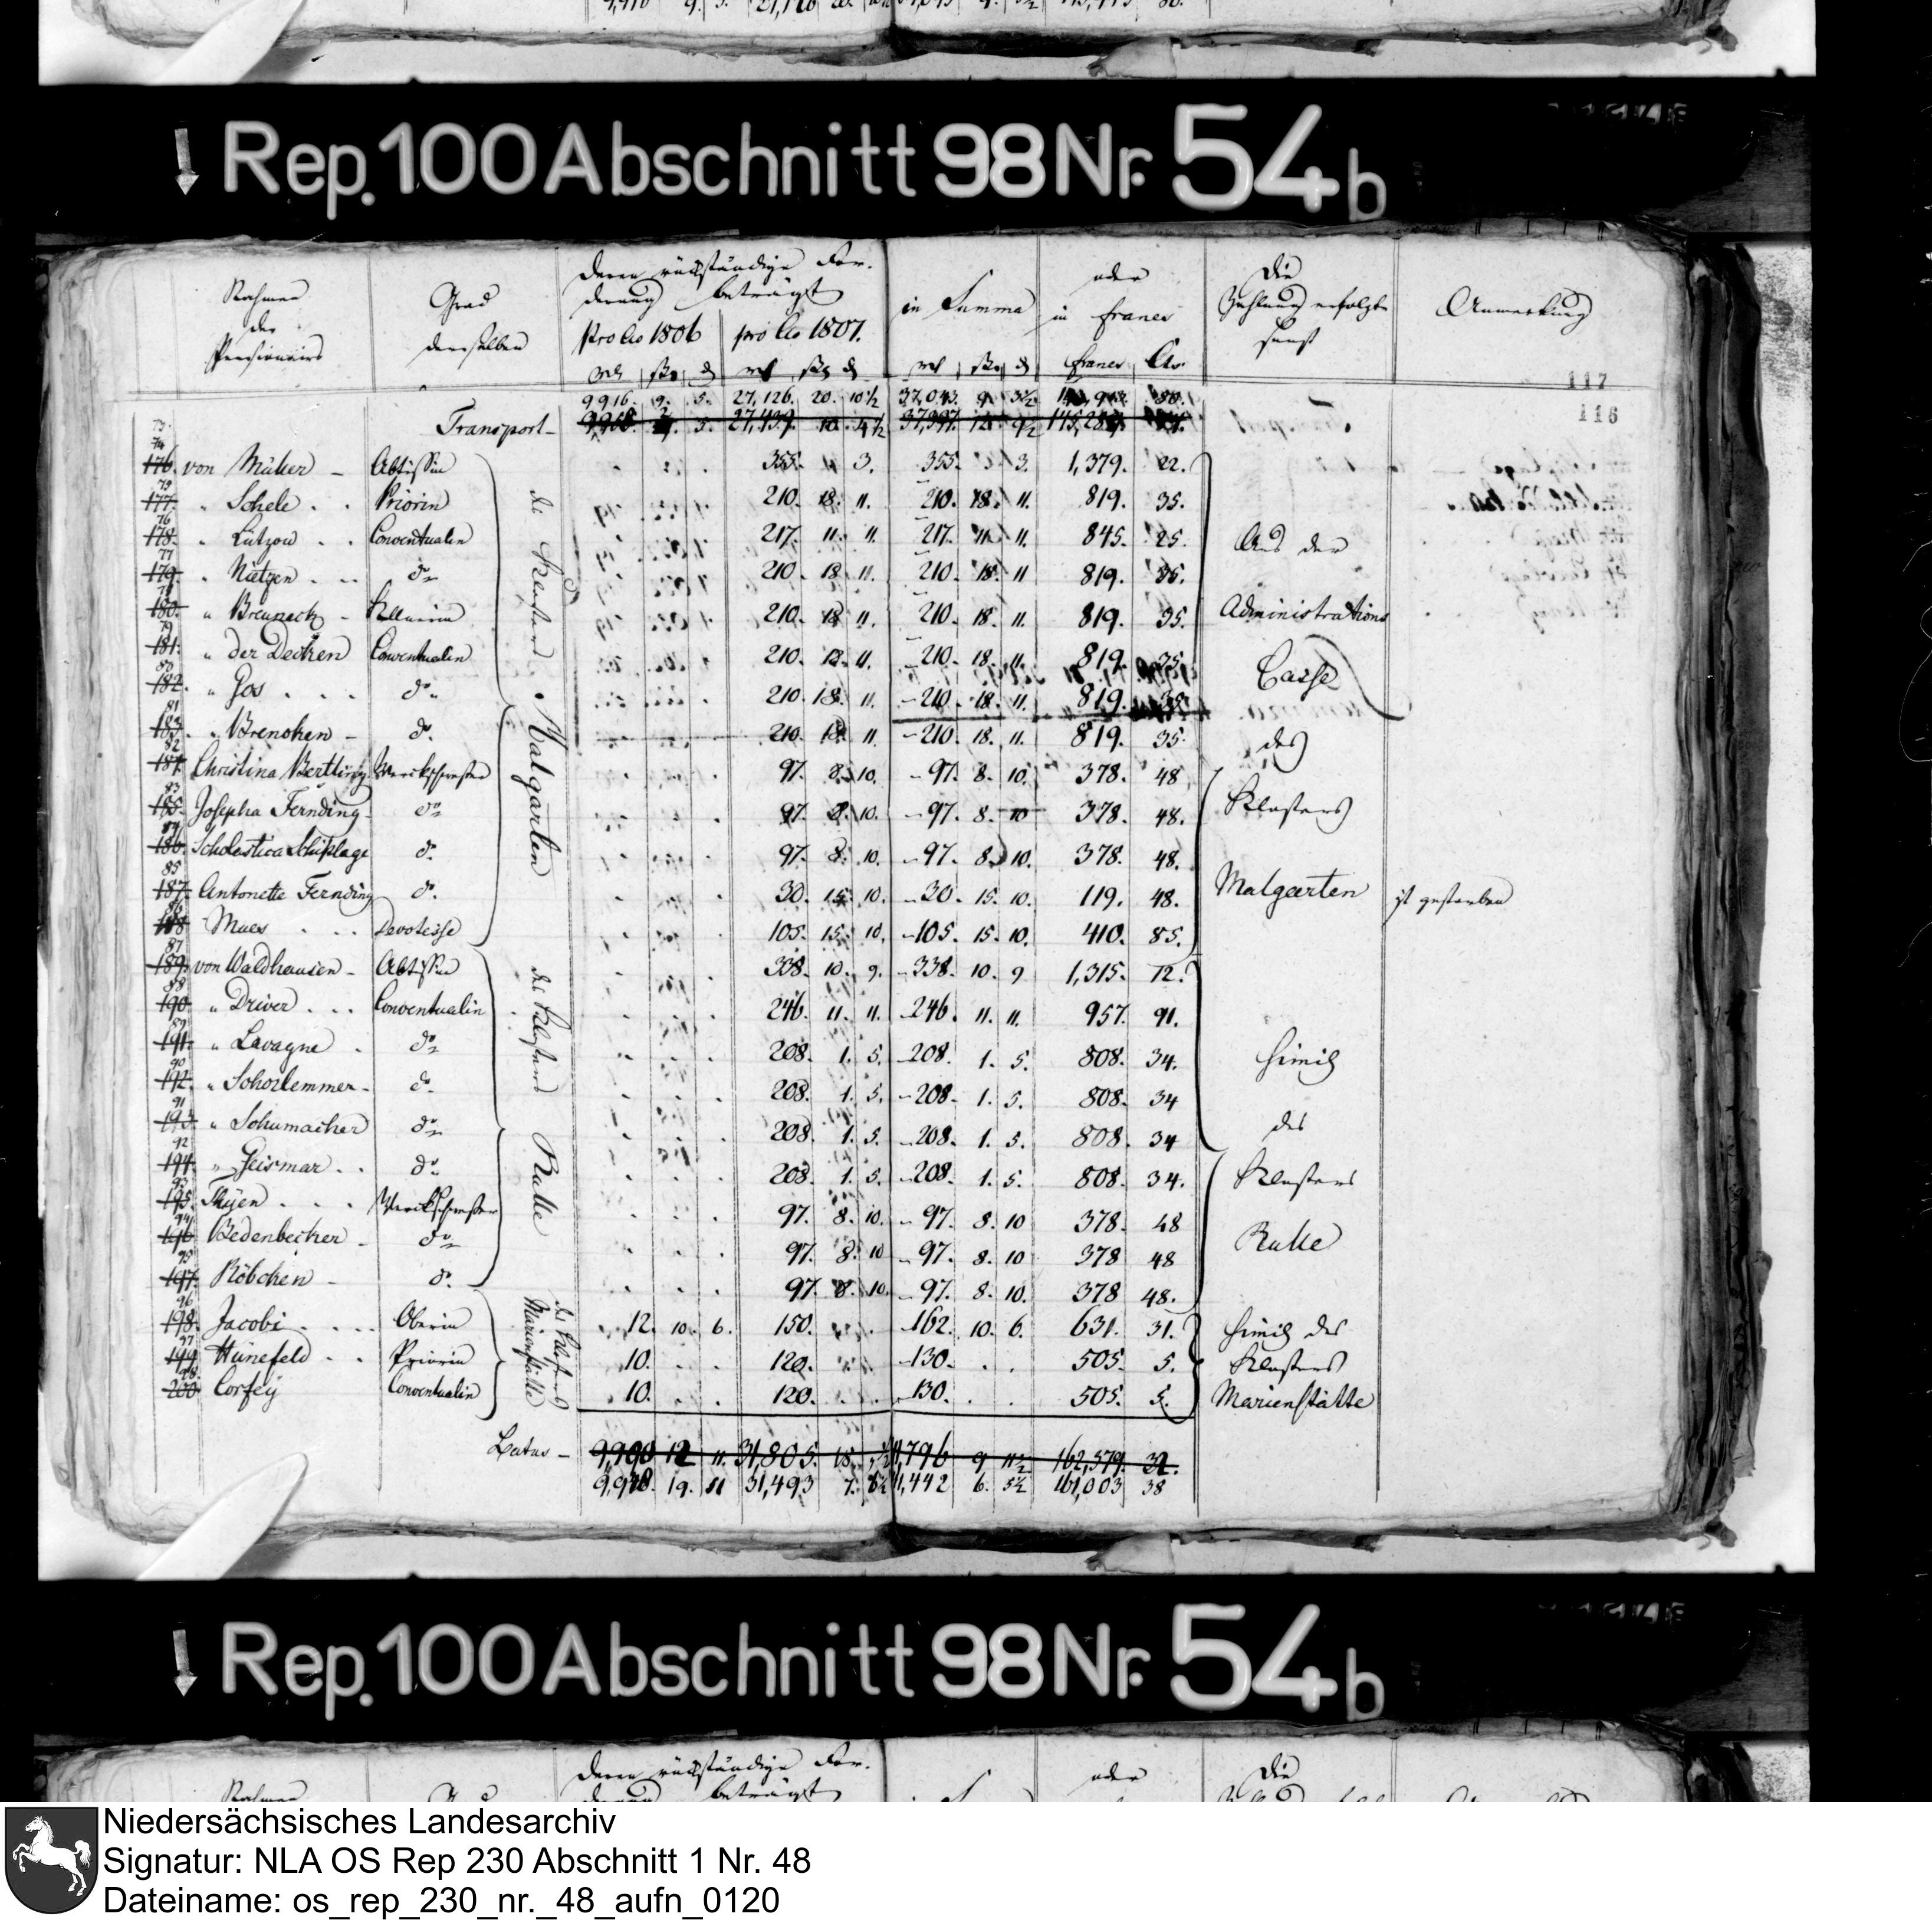 ↓ Rep. 100 Abschnitt 98 Nr. 54 b
Nahmen der Pensionairs
Grad derselben
deren rückständige Forderung beträgt
pro Ao 1806 pro Ao 1807.
in Summa
oder in francs
francs Cts.
die Zahlung erfolgte sonst
Anmerkung
117
116
9916. 9. 5. 27,126. 20. 10½ 37,043. 9. 3½
Transport
74 176. von Müller - Abtissin 355. 3. 355. 3. 1,379. 22.
177. " Schele . . Priorin 210. 18. 11. 210. 18. 11. 819. 35.
76 178. " Lützow . . Conventualin 217. 11. 11. 217. 11. 11. 845. 25.
77 179. " Nietzen . . do 210. 18. 11. 210. 18. 11 819. 35.
180. " Brauneck - Kellnerin 210. 18. 11. 210. 18. 11. 819. 35.
79 181. " der Decken Conventualin 210. 18. 11. 210. 18. 11. 819. 35.
80 182. " Gos . . . do 210. 18. 11. 210. 18. 11. 819. 35.
81 183. " Brencken - do 210. 18. 11. 210. 18. 11. 819. 35.
82 184. Christina Bertling Werckschwester 97. 8. 10. 97. 8. 10. 378. 48
83 185. Josepha Fernding do 97. 8. 10. 97. 8. 10 378. 48.
84 186. Scholastica Schiplage do 97. 8. 10. 97. 8. 10. 378. 48.
85 187. Antonette Fernding do 30. 15. 10. 30. 15. 10. 119. 48. ist gestorben
86 188 Mues . . . Devotesse 105. 15. 10. 105. 15. 10. 410. 85.
des Klosters Malgarten
Aus der Administrations Casse des Klosters Malgarten
87 189. von Waldhausen - Abtissin 338. 10. 9. 338. 10. 9 1,315. 72.
88 190 " Driver . . . Conventualin 246. 11. 11. 246. 11. 11. 957. 91.
89 191. " Lavagne . do 208. 1. 5. 208. 1. 5. 808. 34.
90 192. " Schorlemmer - do 208. 1. 5. 208. 1. 5. 808. 34
91 193. " Schumacher do 208. 1. 5. 208. 1. 5. 808. 34
92 194. " Geismar . . do 208. 1. 5. 208. 1. 5. 808. 34.
93 195. Thyen . . . Werckschwester 97. 8. 10. 97. 8. 10 378. 48
94 196 Bedenbecker - do 97. 8. 10 97. 8. 10 378 48
95 197. Röbchen - do 97. 8. 10. 97. 8. 10. 378 48.
des Klosters Rulle
des Klosters Rulle
96 198. Jacobi . . . . Oberin 12. 10. 6. 150. 162. 10. 6. 631. 31.
97 199 Hünefeld . . Priorin 10. 120. 130. 505. 5.
98 200 Corfey Conventualin 10. . . 120. 130. . . 505. 5.
des Klosters Marienstätte
des Klosters Marienstätte
Latus - 31,805. 796 9 11½ 162,579. 32.
9,938. 19. 11 31,493 7. 442 6. 5½ 161,003 38
↓ Rep. 100 Abschnitt 98 Nr. 54 b
deren rückständige For-
oder
die
Niedersächsisches Landesarchiv
Signatur: NLA OS Rep 230 Abschnitt 1 Nr. 48
Dateiname: os_rep_230_nr._48_aufn_0120